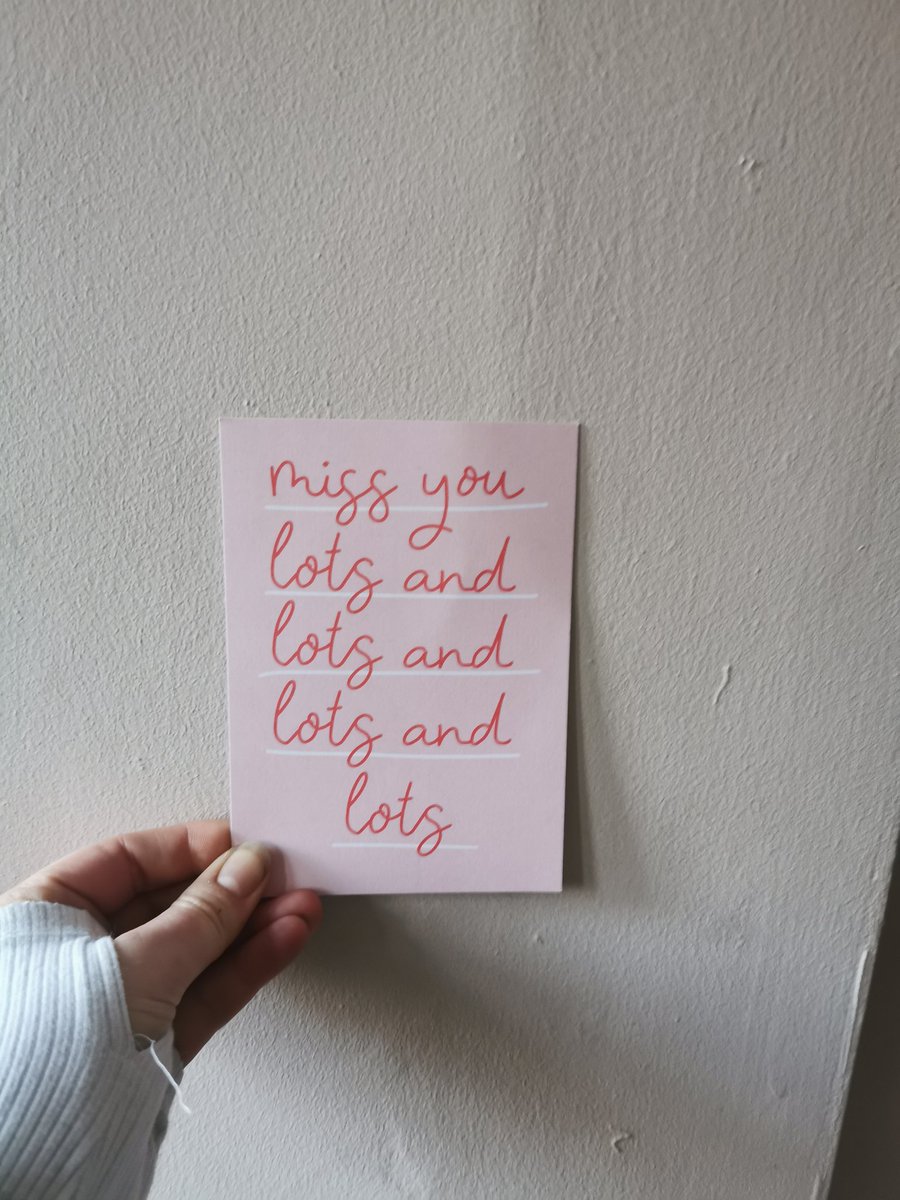 miss you
lots and
lots and
lots and
lots